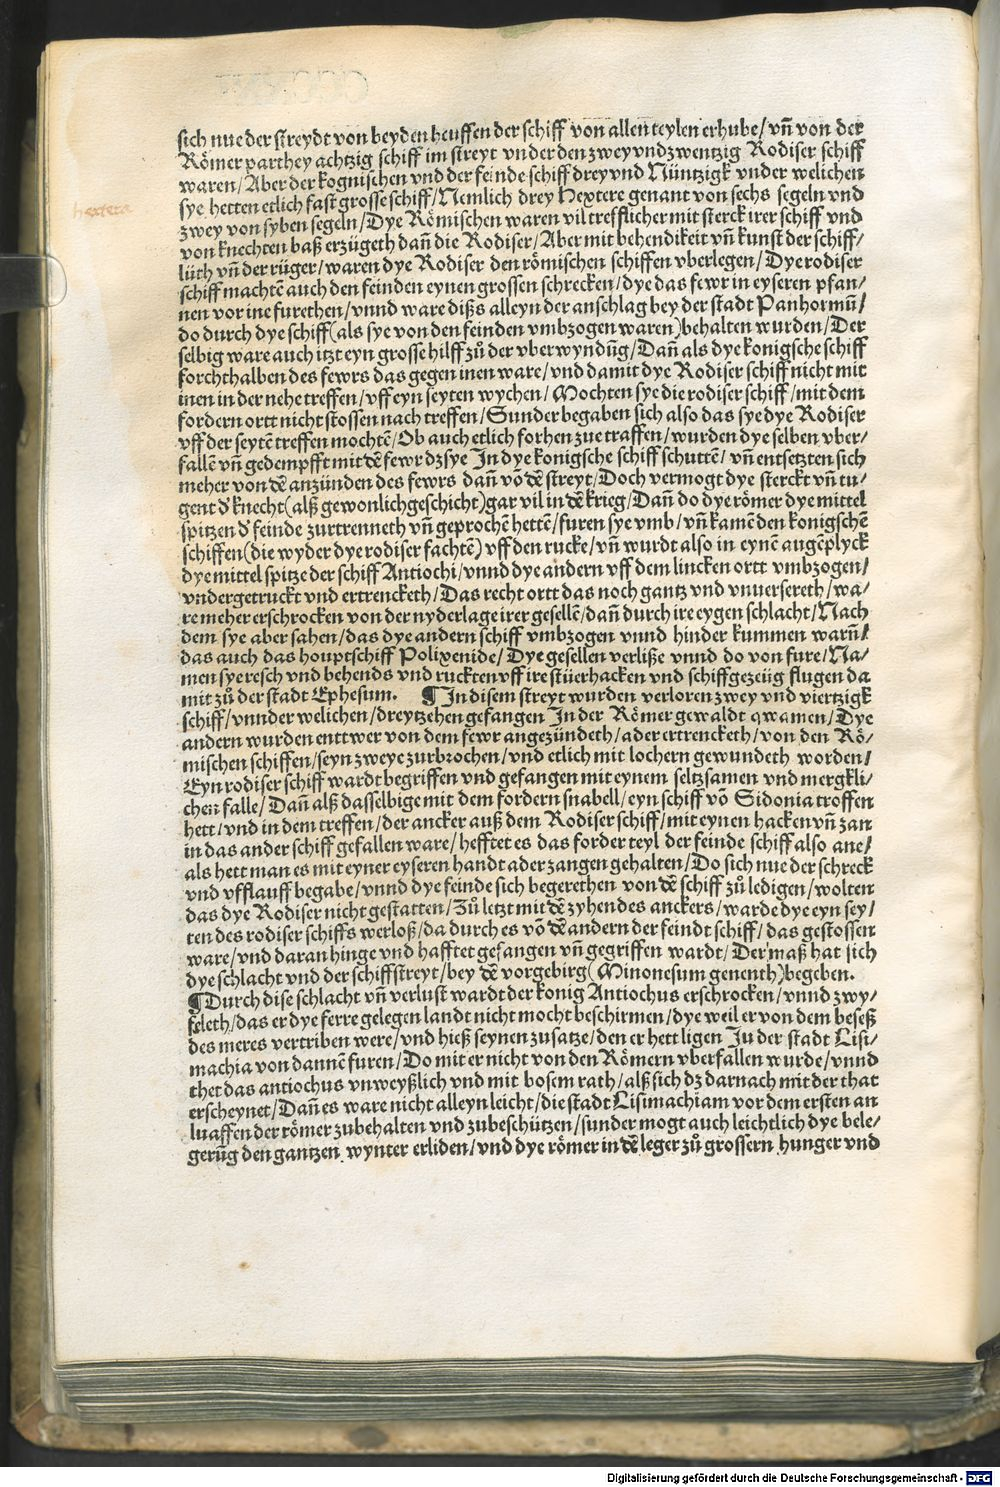 sich nue der streydt von beyden heuffen der schiff von allen teylen erhube/ vñ von der
Römer parthey achtzig schiff im streyt vnder den zwey vnd zwentzig Rodiser schiff
waren/ Aber der kognischen vnd der feinde schiff drey vnd Nüntzigk vnder welichen
hextera
sye hetten etlich fast grosse schiff/ Nemlich drey Hextere genant von sechs segeln vnd
zwey von syben segeln/ Dye Römischen waren vil trefflicher mit sterck irer schiff vnd
von knechten baß erzügeth dañ die Rodiser/ Aber mit behendikeit vñ kunst der schiff/
lüth vñ der rüger/ waren dye Rodiser den römischen schiffen vberlegen/ Dye rodiser
schiff machtē auch den feinden eynen grossen schrecken/ dye das fewr in eyseren pfan/
nen vor ine furethen/ vnnd ware dißs alleyn der anschlag bey der stadt Panhormū/
do durch dye schiff (als sye von den feinden vmbzogen waren) behalten wurden/ Der
selbig ware auch itzt eyn grosse hilff zů der vberwyndūg/ Dañ als dye konigsche schiff
forchthalben des fewrs das gegen inen ware/ vnd damit dye Rodiser schiff nicht mit
inen in der nehe treffen/ vff eyn seyten wychen/ Mochten sye die rodiser schiff/ mit dem
fordern ortt nicht stossen nach treffen/ Sunder begaben sich also das sye dye Rodiser
vff der seytē treffen mochtē/ Ob auch etlich forhen zue traffen/ wurden dye selben vber/
fallē vñ gedempfft mit dē fewr dz sye In dye konigsche schiff schuttē/ vñ entsetzten sich
meher von dē anzünden des fewrs dañ vō dē streyt/ Doch vermogt dye sterckt vñ tu-
gent đ knecht (alß gewonlich geschicht) gar vil in dē krieg/ Dañ do dye römer dye mittel
spitzen đ feinde zurtrenneth vñ geprochē hettē/ furen sye vmb/ vñ kamē den konigschē
schiffen (die wyder dye rodiser fachtē) vff den rucke/ vñ wurdt also in eynē augēplyck
dye mittel spitze der schiff Antiochi/ vnnd dye andern vff dem lincken ortt vmbzogen/
vndergetruckt vnd ertrencketh/ Das recht ortt das noch gantz vnd vnuersereth/ wa/
re meher erschrocken von der nyderlage irer gesellē/ dañ durch ire eygen schlacht/ Nach
dem sye aber sahen/ das dye andern schiff vmbzogen vnnd hinder kummen warñ/
das auch das houptschiff Polixenide/ Dye gesellen verliße vnnd do von fure/ Na/
men sye resch vnd behends vnd ruckten vff ire stüerhacken vnd schiffgezeüg flugen da
mit zů der stadt Ephesum. ¶ In disem streyt wurden verloren zwey vnd viertzigk
schiff/ vnnder welichen/ dreytzehen gefangen In der Römer gewaldt qwamen/ Dye
andern wurden enttwer von dem fewr angezündeth/ ader ertrencketh/ von den Rö/
mischen schiffen/ seyn zweye zurbrochen/ vnd etlich mit lochern gewundeth worden/
Eyn rodiser schiff wardt begriffen vnd gefangen mit eynem seltzsamen vnd mergkli/
chen falle/ Dañ alß dasselbige mit dem fordern snabell/ eyn schiff vō Sidonia troffen
hett/ vnd in dem treffen/ der ancker auß dem Rodiser schiff/ mit eynen hacken vñ zan
in das ander schiff gefallen ware/ hefftet es das forder teyl der feinde schiff also ane/
als hett man es mit eyner eyseren handt ader zangen gehalten/ Do sich nue der schreck
vnd vfflauff begabe/ vnnd dye feinde sich begerethen von dē schiff zů ledigen/ wolten
das dye Rodiser nicht gestatten/ Zů letzt mit dē zyhen des anckers/ warde dye eyn sey/
ten des rodiser schiffs werloß/ da durch es vō dē andern der feindt schiff/ das gestossen
ware/ vnd daran hinge vnd hafftet gefangen vñ gegriffen wardt/ Der maß hat sich
dye schlacht vnd der schiffstreyt/ bey dē vorgebirg (Minonesum genenth) begeben.
¶Durch dise schlacht vñ verlust wardt der konig Antiochus erschrocken/ vnnd zwy/
feleth/ das er dye ferre gelegen landt nicht mocht beschirmen/ dye weil er von dem beseß
des meres vertriben were/ vnd hieß seynen zusatze/ den er hett ligen In der stadt Lisi-
machia von dannē furen/ Do mit er nicht von den Römern vberfallen wurde/ vnnd
thet das antiochus vnweyßlich vnd mit bosem rath/ alß sich dz darnach mit der that
erscheynet/ Dañ es ware nicht alleyn leicht/ die stadt Lisimachiam vor dem ersten an
luaffen der römer zubehalten vnd zubeschützen/ sunder mogt auch leichtlich dye bele-
gerūg den gantzen wynter erliden/ vnd dye römer in dē leger zů grossern hunger vnd
Digitalisierung gefördert durch die Deutsche Forschungsgemeinschaft - DFG